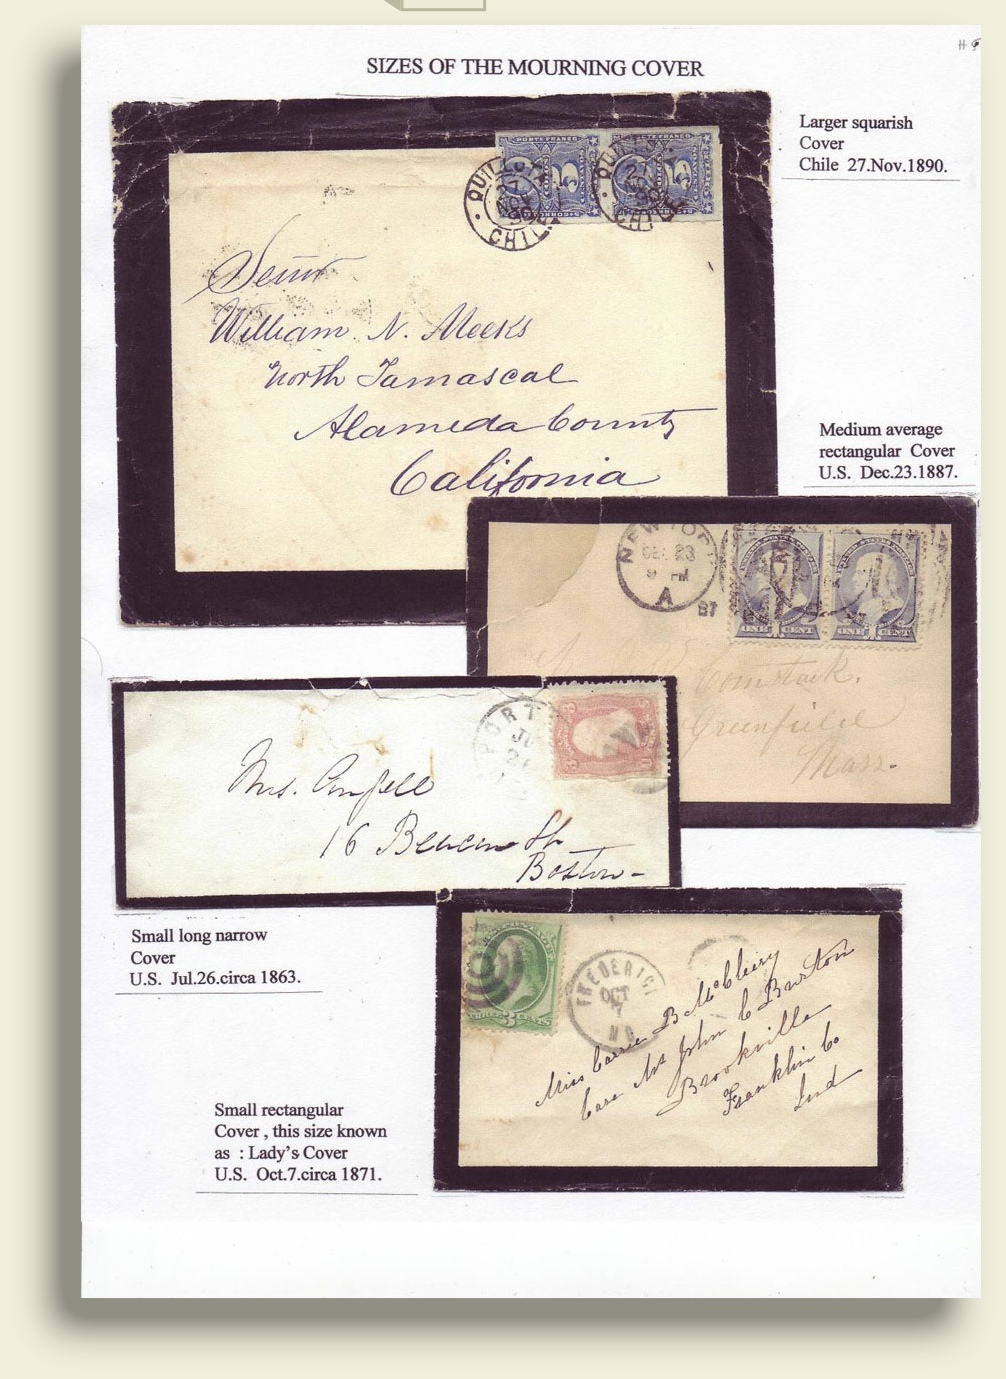 SIZES OF THE MOURNING COVER
Larger squarish
Cover
Chile 27.Nov.1890.
QUILLOTA
27
NOV
90
CHILE
Señor
William N. Meeks
North Tamascal
Alameda County
California
Medium average
rectangular Cover
U.S. Dec.23.1887.
NEW YORK
DEC 23
9 PM
A
87
ONE CENT
ONE CENT
Comstock,
Greenfield
Mass.
PORT
3
Mrs.
16 Beacon St
Boston
Small long narrow
Cover
U.S. Jul.26.circa 1863.
THREE 3 CENTS
FREDERICK
OCT
7
MD
Miss Carrie B McCleery
Care Mr John C Burton
Brookville
Franklin Co
Ind
Small rectangular
Cover , this size known
as : Lady's Cover
U.S. Oct.7.circa 1871.